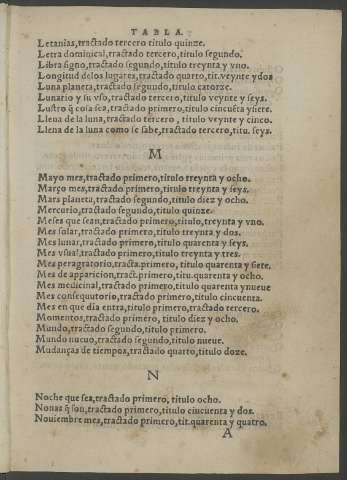 TABLA.
Letanias, tractado tercero titulo quinze.
Letra dominical, tractado tercero, titulo segundo.
Libra signo, tractado segundo, titulo treynta y vno.
Longitud delos lugares, tractado quarto, tit. veynte y dos
Luna planeta, tractado segundo, titulo catorze.
Lunario y su vso, tractado tercero, titulo veynte y seys.
Lustro q̃ cosa sea, tractado primero, titulo cincueta y siete.
Llena de la luna, tractado tercero, titulo veynte y cinco.
Llena de la luna como se sabe, tractado tercero, titu. seys.
M
Mayo mes, tractado primero, titulo treynta y ocho.
Março mes, tractado primero, titulo treynta y seys.
Mars planetu, tractado segundo, titulo diez y ocho.
Mercorio, tractado segundo, titulo quinze.
Meses que sean, tractado primero, titulo, treynta y vno.
Mes solar, tractado primero, titulo treynta y dos.
Mes lunar, tractado primero, titulo quarenta y seys.
Mes vsual, tractado primero, titulo treynta y tres.
Mes peragratorio, tracta. primero, titulo quarenta y siete.
Mes de apparicion, tract. primero, titu. quarenta y ocho.
Mes medicinal, tractado primero, titulo quarenta y nueue
Mes consequutorio, tractado primero, titulo cincuenta.
Mes en que dia entra, titulo primero, tractado tercero.
Momentos, tractado primero, titulo diez y ocho.
Mundo, tractado segundo, titulo primero.
Mundo nueuo, tractado segundo, titulo nueue.
Mudanças de tiempos, tractado quarto, titulo doze.
N
Noche que sea, tractado primero, titulo ocho.
Nonas q̃ son, tractado primero, titulo ciucuenta y dos.
Noviembre mes, tractado primero, tit. quarenta y quatro.
A